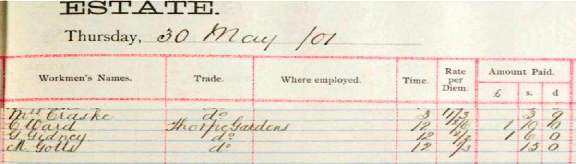 ESTATE.
Thursday, 30 May /01
Workmen's Names. Trade. Where employed. Time. Rate per Diem. Amount Paid.
£ s. d
Mrs Craske do 3 1/3 3 9
C Ward Thorpe Gardens 12
G Gidney do 12 1 6 0
M. Gotts do 12 1/3 15 0